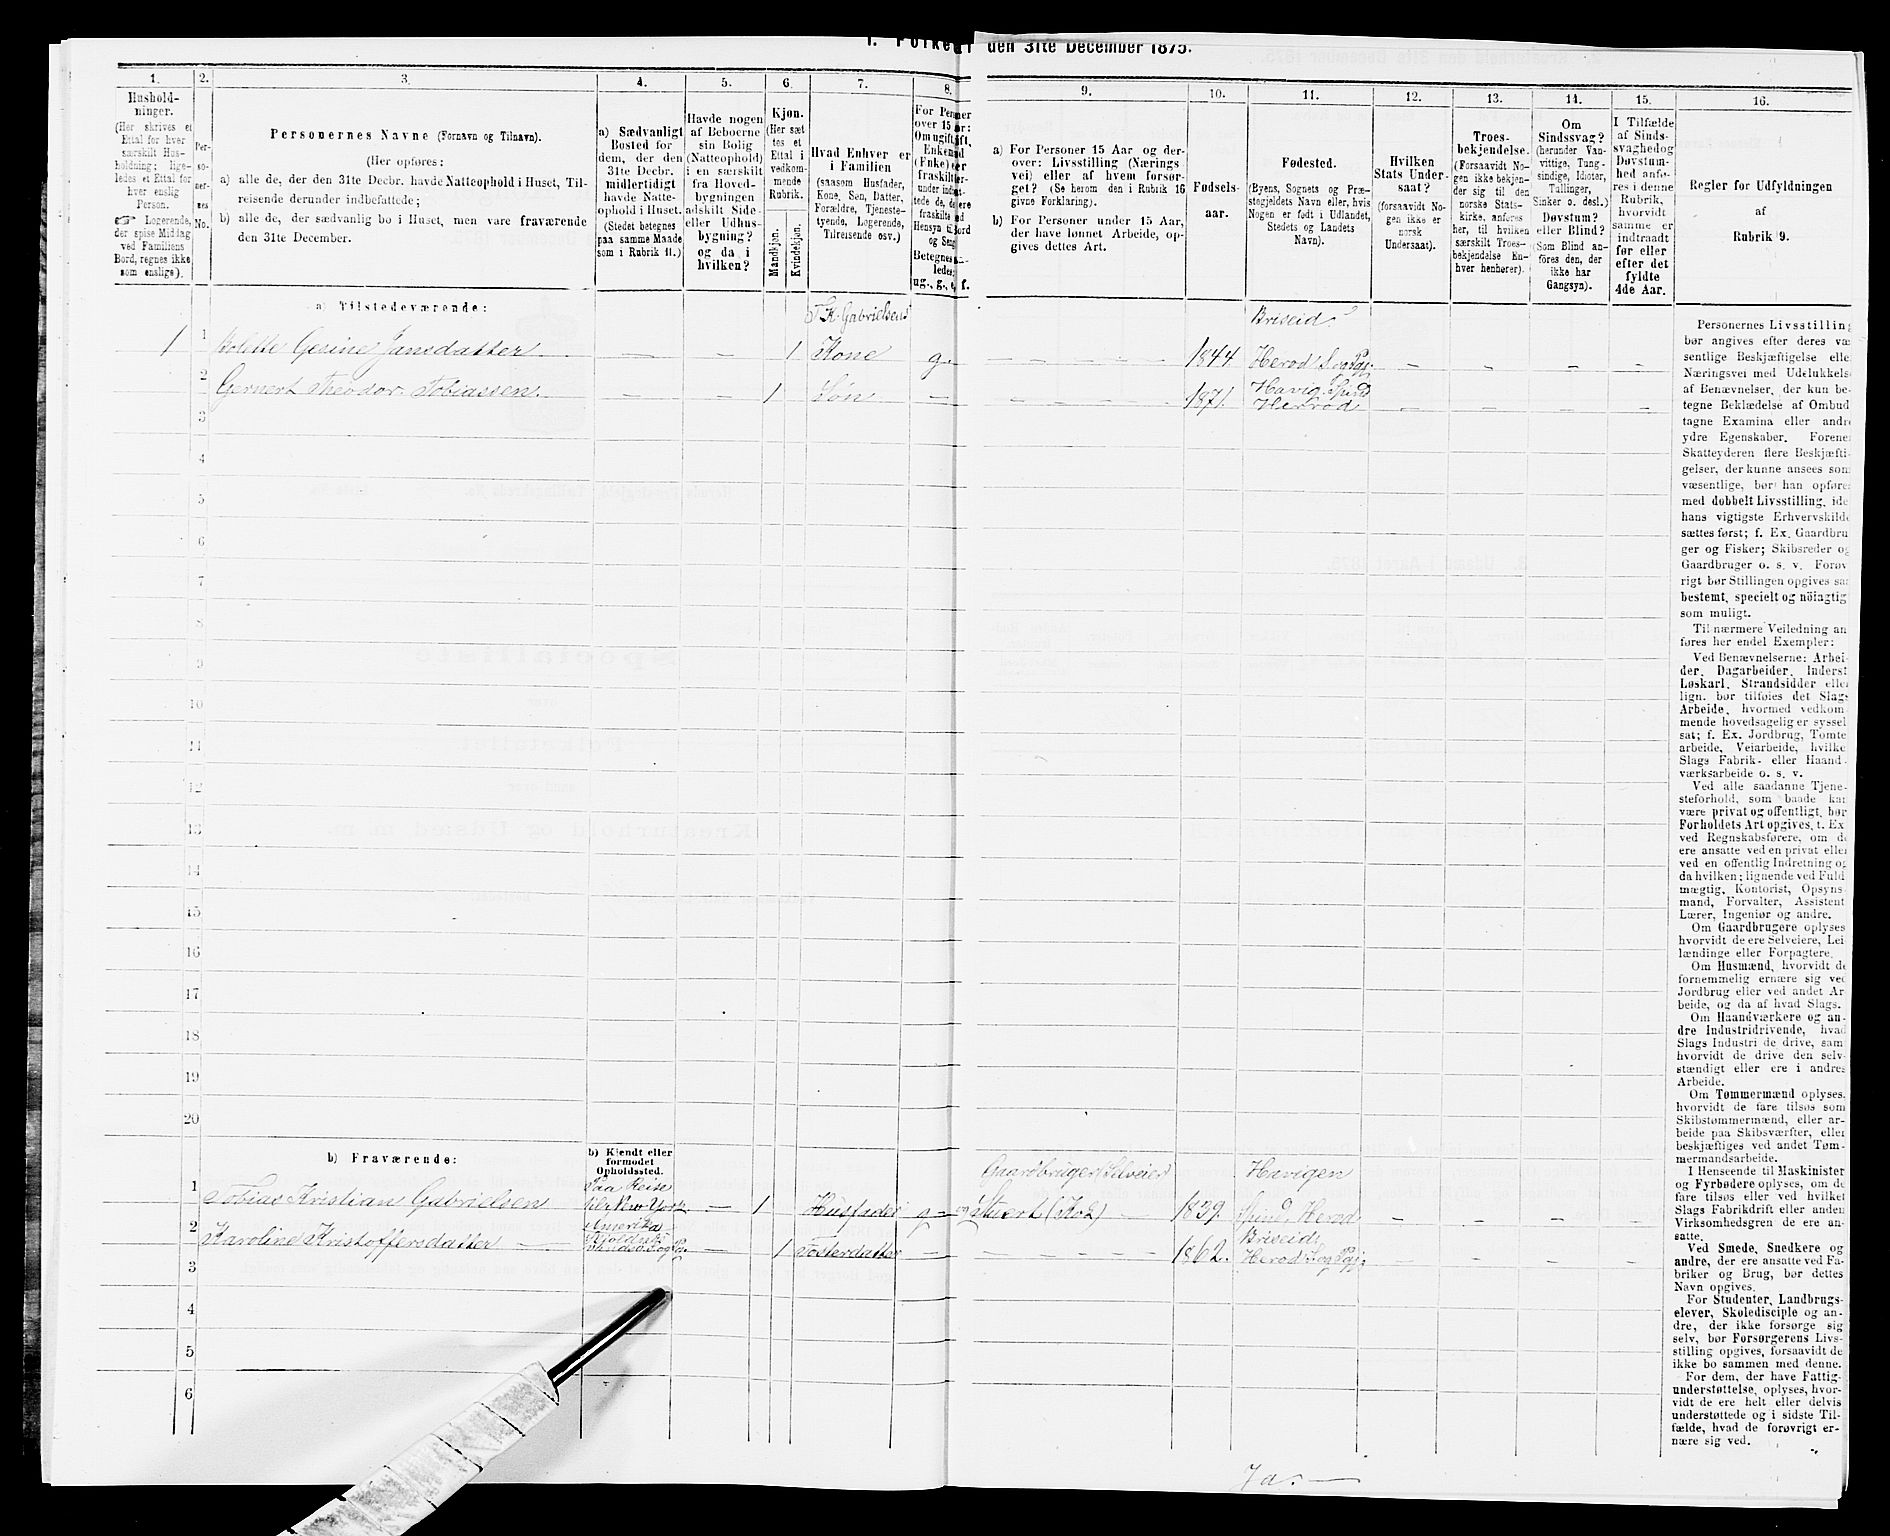 I. Folketal den 31te December 1875.
1. 2. 3. 4. 5. 6. 7. 8. 9. 10. 11. 12. 13. 14. 15. 16.
Hushold-
ninger.
(Her skrives et
Ettal for hver
særskilt Hus-
holdning; lige-
ledes et Ettal for
hver enslig
Person.
Logerende,
der spise Middag
ved Familiens
Bord, regnes ikke
som enslige).
Per-
so-
ner-
nes
No.
Personernes Navne (Fornavn og Tilnavn).
(Her opføres:
a) alle de, der den 31te Decbr. havde Natteophold i Huset, Til-
reisende derunder indbefattede;
b) alle de, der sædvanlig bo i Huset, men vare fraværende
den 31te December.
a) Sædvanligt
Bosted for
dem, der den
31te Decbr.
midlertidigt
havde Natte-
ophold i Huset.
(Stedet betegnes
paa samme Maade
som i Rubrik 11.)
Havde nogen
af Beboerne
sin Bolig
(Natteophold)
i en særskilt
fra Hoved-
bygningen
adskilt Side-
eller Udhus-
bygning?
og da i
hvilken?
Kjøn.
(Her sæt-
tes et
Ettal i
vedkom-
mende
Rubrik.
Mandkjøn.
Kvindekjøn.
Hvad Enhver er
i Familien
(saasom Husfader,
Kone, Søn, Datter,
Forældre, Tjeneste-
tyende, Logerende,
Tilreisende osv.)
a) For Personer 15 Aar og der-
over: Livsstilling (Nærings
vei) eller af hvem forsør-
get? (Se herom den i Rubrik 16
givne Forklaring).
b) For Personer under 15 Aar,
der have lønnet Arbeide, op-
gives dettes Art.
Fødsels-
aar.
Fødested.
(Byens, Sognets og Præ-
stegjeldets Navn eller, hvis
Nogen er født i Udlandet,
Stedets og Landets
Navn).
Hvilken
Stats Under-
saat?
(forsaavidt No-
gen ikke er
norsk
Undersaat).
Troes-
bekjendelse.
(Forsaavidt No-
gen ikke bekjen-
der sig til den
norske Stats-
kirke, anføres
her, til hvilken
særskilt Troes-
bekjendelse En-
hver henhører).
Om
Sindssvag?
(herunder Van-
vittige, Tung-
sindige, Idioter,
Tullinger,
Sinker o. desl.)
Døvstum?
eller Blind?
(Som Blind an-
føres den, der
ikke har
Gangsyn).
I Tilfælde
af Sinds-
svaghed og
Døvstum-
hed anfø-
res i denne
Rubrik,
hvorvidt
samme er
indtraadt
før eller
efter det
fyldte
4de Aar.
Regler for Udfyldningen
af
Rubrik 9.
a) Tilstedeværende:
T. K. Gabrielsens Briseid
1 1 Bolette Gesine Jansdatter — — 1 Kone g. — 1844 Herod S. og Pgj. — — — —
2 Gernert Theodor Tobiassen. — — 1 Søn — — 1871. Havig. Spind Herrod — — — —
3
4
5
6
7
8
9
10
11
12
13
14
15
16
17
18
19
20
b) Fraværende:
b) Kjendt eller
formodet
Opholdssted.
Gaardbruger Selveier Havigen
1 Tobias Kristian Gabrielsen Paa Reise til New York Amerika — 1 Husfader g og Stuert (Kok) — 1839. Spind, Herod — — — —
2 Karoline Kristoffersdatter — — 1 Fosterdatter — — 1862. Briseid, Herod Sogn Pgj. — — — —
3
4
5
6
Personernes Livsstilling
bør angives efter deres væ
sentlige Beskjæftigelse eller
Næringsvei med Udelukkels
af Benævnelser, der kun be-
tegne Beklædelse af Ombud
tagne Examina eller andr
ydre Egenskaber. Forener
Skatteyderen flere Beskjæfti-
gelser, der kunne ansees som
væsentlige, bør han opføres
med dobbelt Livsstilling, ide
hans vigtigste Erhvervskilde
sættes først; f. Ex. Gaardbru
ger og Fisker; Skibsreder og
Gaardbruger o. s. v. Forøv
rigt bør Stillingen opgives saa
bestemt, specielt og nöiagtig
som muligt.
Til nærmere Veiledning an
føres her endel Exempler:
Ved Benævnelserne: Arbei-
der, Dagarbeider, Inderst
Løskarl, Strandsidder eller
lign. bør tilføies det Slags
Arbeide, hvormed vedkom
mende hovedsagelig er syssel
sat; f. Ex. Jordbrug, Tomte
arbeide, Veiarbeide, hvilke
Slags Fabrik- eller Haand
værksarbeide o. s. v.
Ved alle saadanne Tjene-
steforhold, som baade kan
være privat og offentligt, bør
Forholdets Art opgives, f. Ex
ved Regnskabsførere, om de
ere ansatte ved en privat eller
ved en offentlig Indretning og
da hvilken; lignende ved Fuld
mægtig, Kontorist, Opsyns-
mand, Forvalter, Assistent
Lærer, Ingeniør og andre.
Om Gaardbrugere oplyses
hvorvidt de ere Selveiere, Lei
lændinge eller Forpagtere.
Om Husmænd, hvorvidt de
fornemmelig ernære sig ved
Jordbrug eller ved andet Ar
beide, og da af hvad Slags.
Om Haandværkere og an-
dre Industridrivende, hvad
Slags Industri de drive, samt
hvorvidt de drive den selv-
stændigt eller ere i andres
Arbeide.
Om Tømmermænd oplyses,
hvorvidt de fare tilsøs som
Skibstømmermænd, eller ar-
beide paa Skibsværfter, eller
beskjæftiges ved andet Tøm-
mermandsarbeide.
I Henseende til Maskinister
og Fyrbødere oplyses, om de
fare tilsøs eller ved hvilket
Slags Fabrikdrift eller anden
Virksomhedsgren de ere an-
satte.
Ved Smede, Snedkere og
andre, der ere ansatte ved Fa-
briker og Brug, bør dettes
Navn opgives.
For Studenter, Landbrugs-
elever, Skoledisciple og an-
dre, der ikke forsørge sig
selv, bør Forsørgerens Livs-
stilling opgives, forsaavidt de
ikke bo sammen med denne.
For dem, der have Fattig-
understøttelse, oplyses, hvor-
vidt de ere helt eller delvis
understøttede og i sidste Til-
fælde, hvad de forøvrigt er-
nære sig ved.
Ja. —